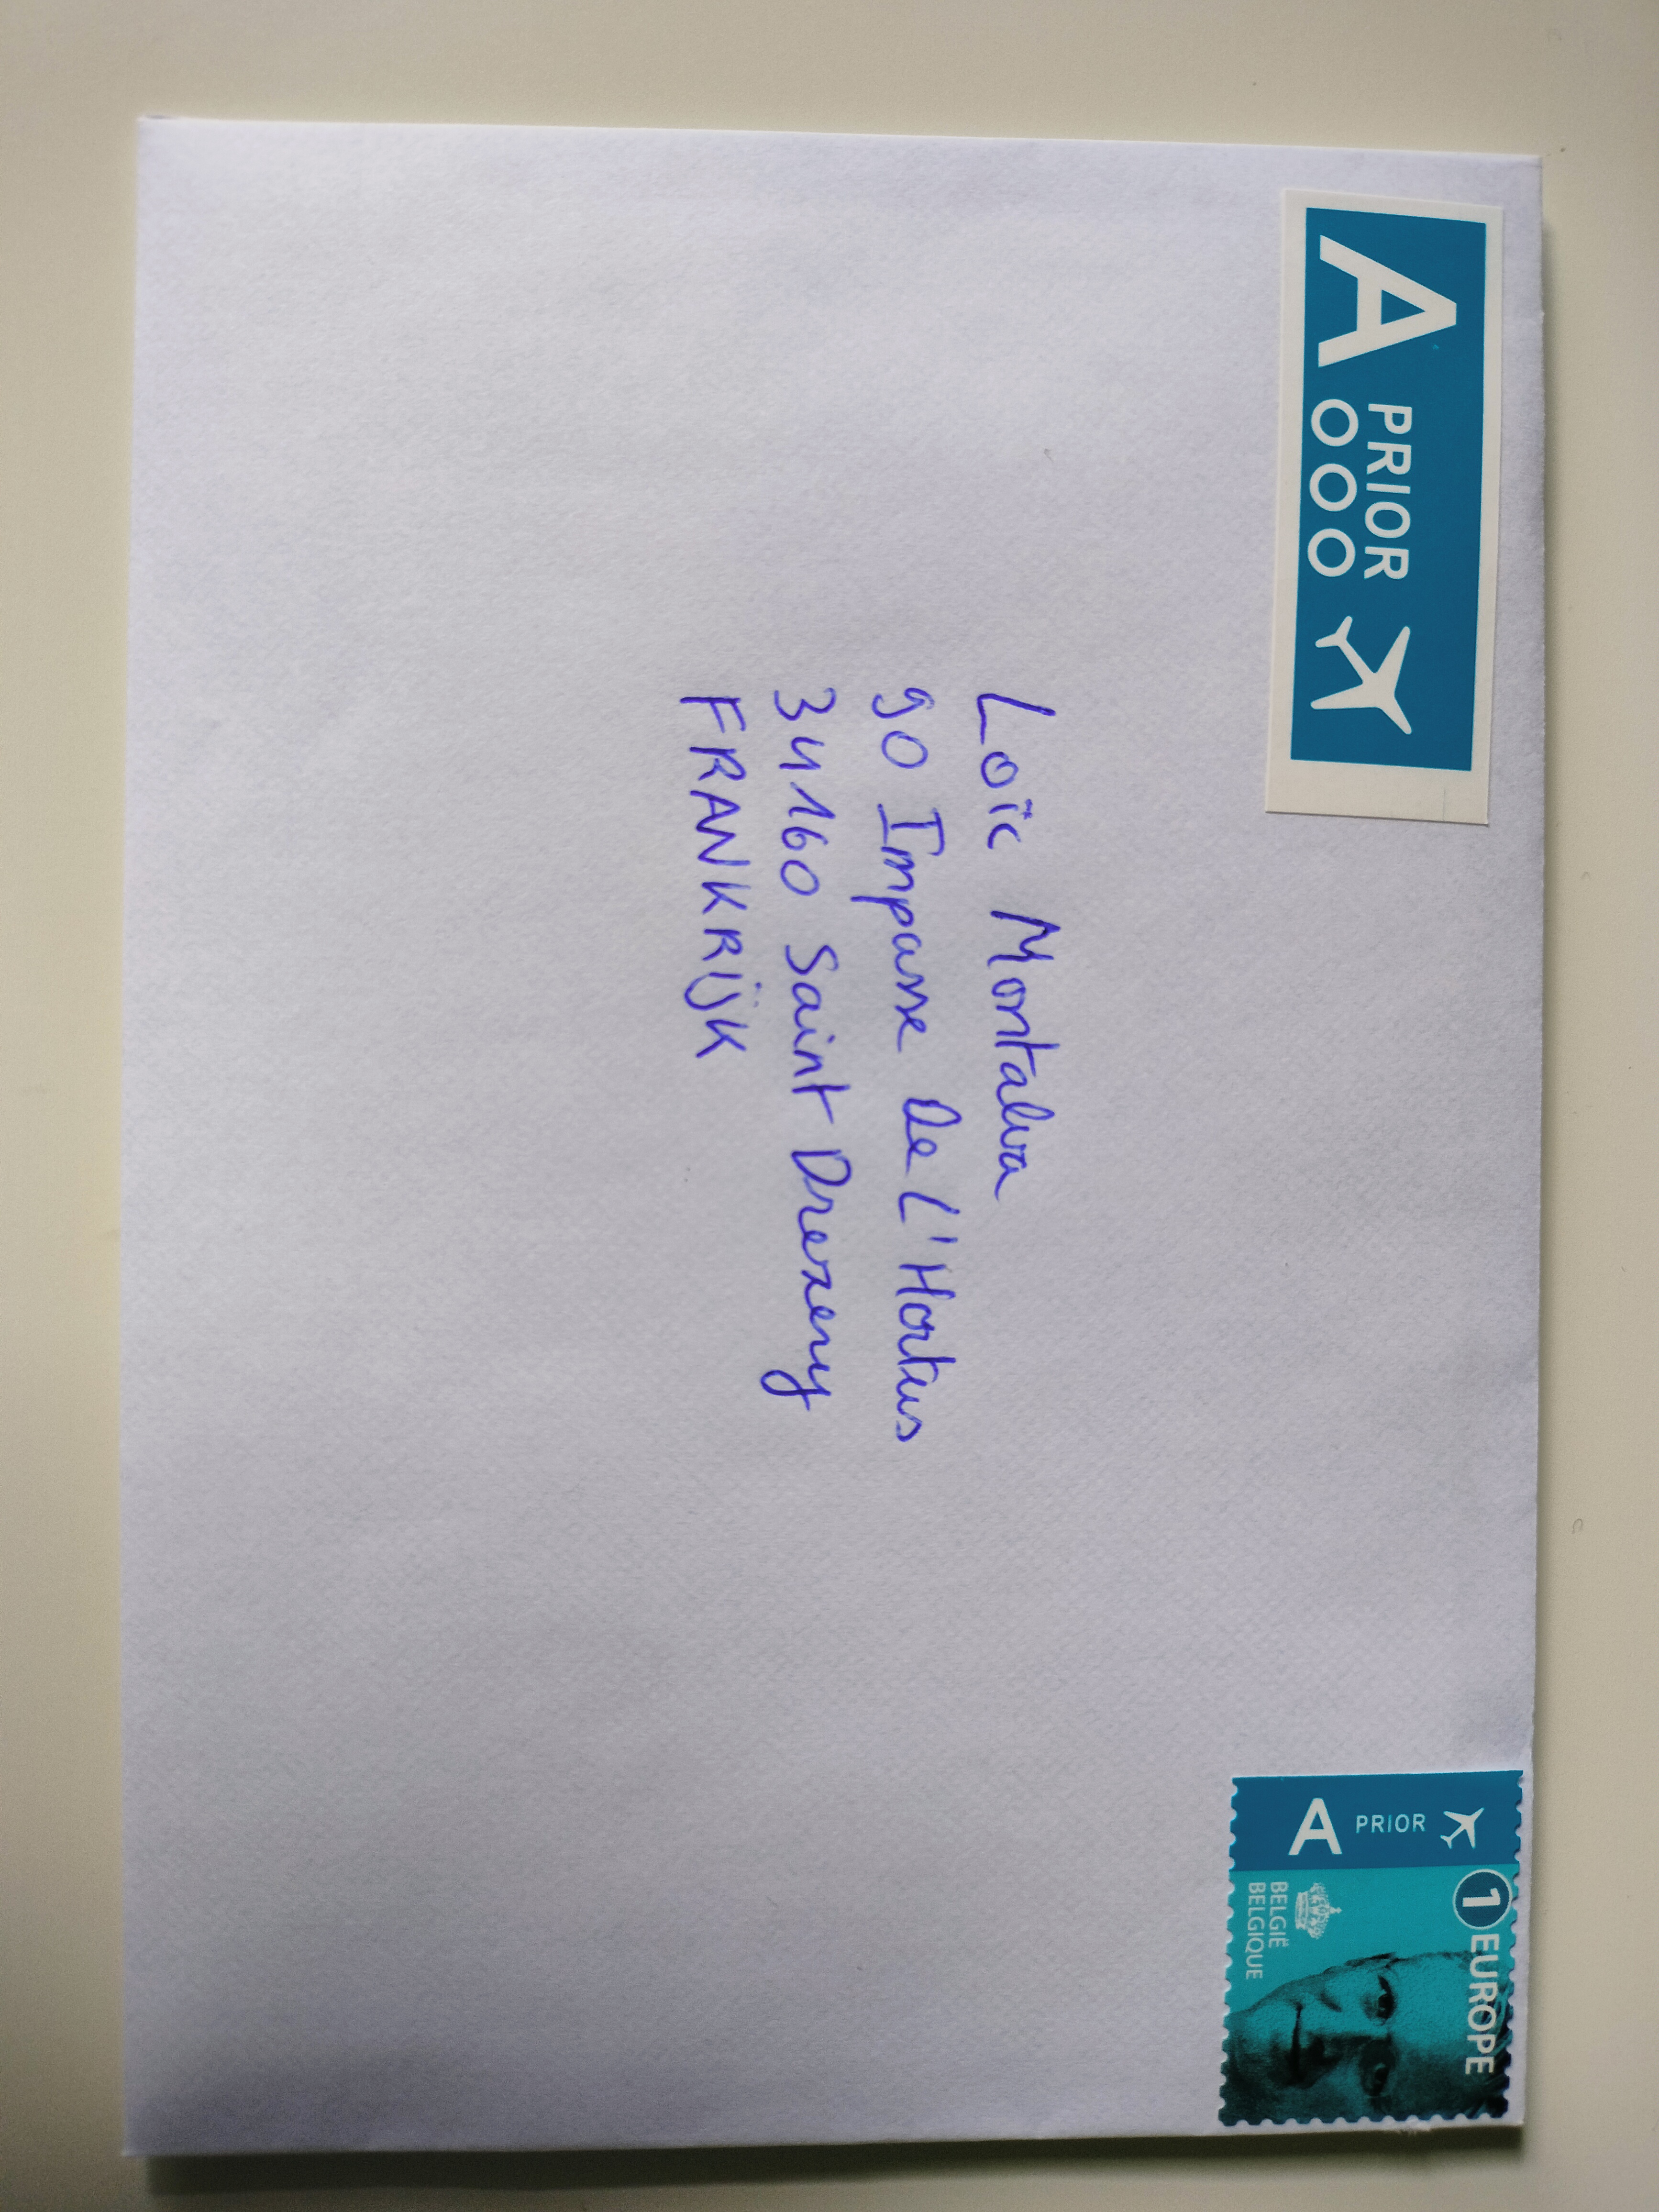 A PRIOR
Loïc Montalva
90 Impasse De L'Hortus
34160 Saint Drezery
FRANKRIJK
A PRIOR
1 EUROPE
BELGIË
BELGIQUE